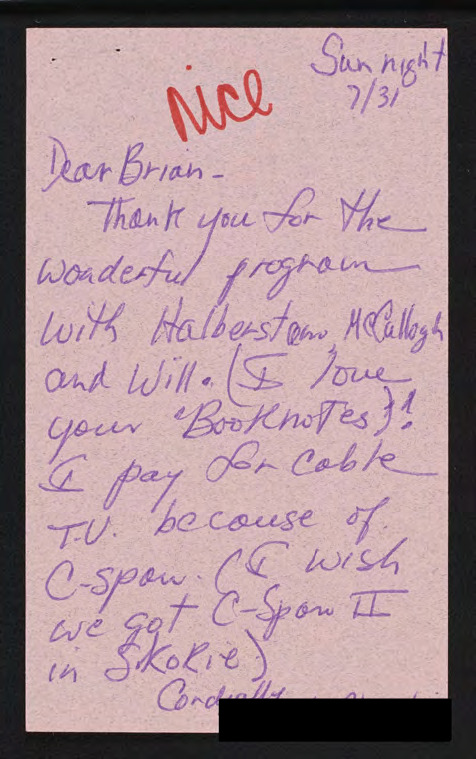 Sun night
7/31
Nice
Dear Brian -
Thank you for the
wonderful program
with Halberstam, McCullogh
and Will. (I love
your "Booknotes)!
I pay for cable
T.V. because of
C-span. (I wish
we got C-Span II
in Skokie)
Cordially